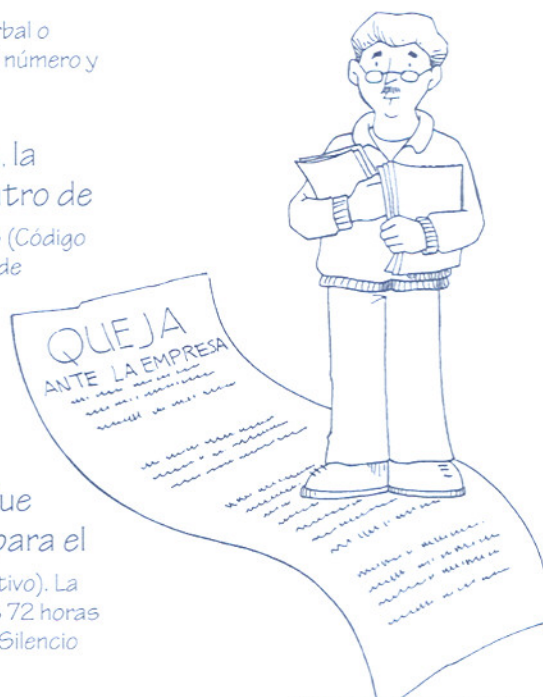 rbal o
número y
. la
tro de
(Código
de
QUEJA
ANTE LA EMPRESA
ue
para el
tivo). La
72 horas
Silencio